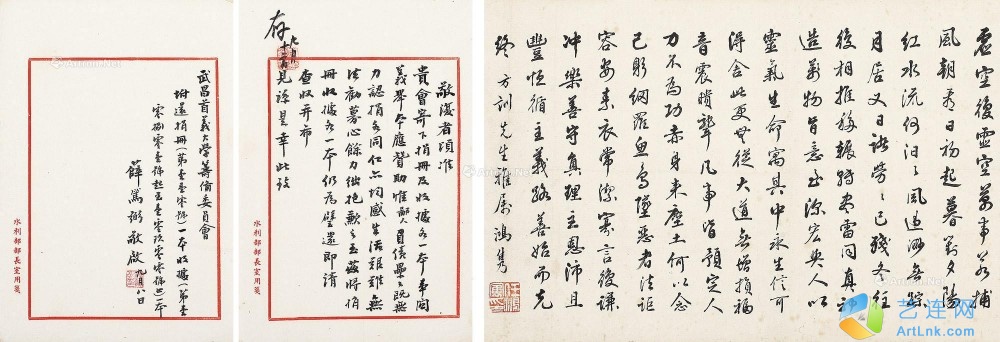 敬復者頃准
貴會寄下捐冊及收據各一本事關
義舉本應贊助惟鄙人負債纍纍既無
力認捐各同仁亦均感生活艱難無
法勸募心餘力絀抱歉之至茲將捐
冊收據各一本仍為璧還即請
查收并希
見諒是幸此致
存
水利部部長室用箋
武昌首義大學籌備委員會
附還捐冊(第壹壹零號)一本收據(第壹
零捌零壹號起至壹零玖零零號止)一本
薛篤弼 敬啟 九月八日
水利部部長室用箋
虛空復虛空萬事若捕
風朝看日初起暮對夕陽
紅水流何汩汩風過渺無蹤
月居又日諸勞勞已殘冬往
後相推移輾轉奔雷同真神
造萬物旨意至深宏與人以
靈氣生命寓其中永生信可
得舍此更無從大道無增損福
音震聵聾凡事皆預定人
力不為功赤身來塵土何以念
己躬網羅魚鳥墜惡者法詎
容安 衣常潔寡言復謙
沖樂善守真理主恩沛且
豐恒循主義路善始而克
終 方訓先生雅屬 鴻雋
艺连网
ArtLnk.com